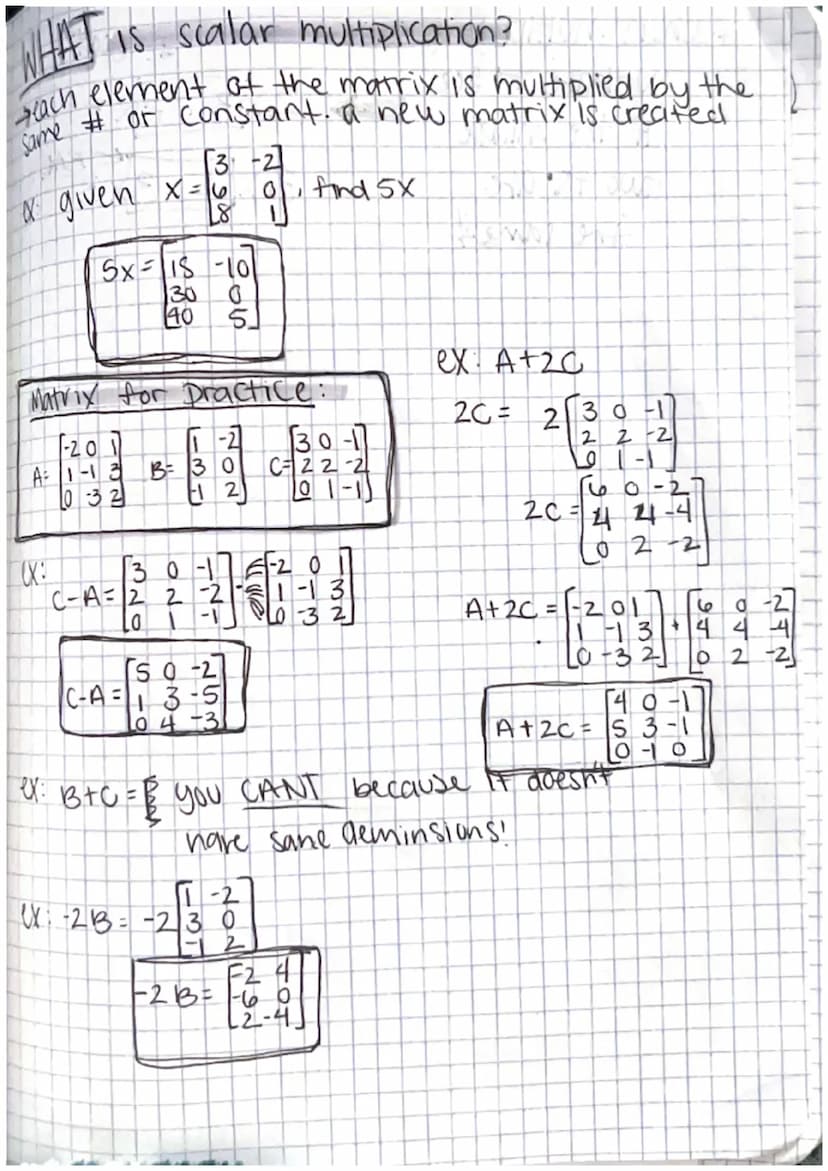 WHAT is scalar multiplication?
→each element of the matrix is multiplied by the
same # or constant. a new matrix is created
ex: given X = [3 -2
6 0
8 1], find 5X
5x = [15 -10
30 0
40 5]
Matrix for practice:
A= [-2 0 1
1 -1 3
0 -3 2]
B= [1 -2
3 0
-1 2]
C= [3 0 -1
2 2 -2
0 1 -1]
ex:
C-A= [3 0 -1
2 2 -2
0 1 -1] - [-2 0 1
1 -1 3
0 -3 2]
C-A = [5 0 -2
1 3 -5
0 4 -3]
ex: A+2C
2C = 2 [3 0 -1
2 2 -2
0 1 -1]
2C = [6 0 -2
4 4 -4
0 2 -2]
A+2C = [-2 0 1
1 -1 3
0 -3 2] + [6 0 -2
4 4 -4
0 2 -2]
A+2C = [4 0 -1
5 3 -1
0 -1 0]
ex: B+C = you CANT because it doesn't
have same deminsions!
ex: -2B = -2 [1 -2
3 0
-1 2]
-2B= [-2 4
-6 0
2 -4]